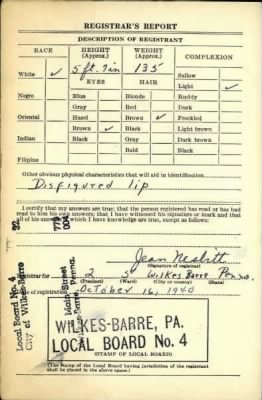 REGISTRAR'S REPORT
DESCRIPTION OF REGISTRANT
RACE HEIGHT (Approx.) WEIGHT (Approx.) COMPLEXION
5 ft. 7 in 135
White ✓ EYES HAIR Sallow
Light ✓
Negro Blue Blonde Ruddy
Gray Red Dark
Oriental Hazel Brown ✓ Freckled
Brown ✓ Black Light brown
Indian Black Gray Dark brown
Bald Black
Filipino
Other obvious physical characteristics that will aid in identification
Disfigured lip
I certify that my answers are true; that the person registered has read or has had
read to him his own answers; that I have witnessed his signature or mark and that
all of his answers of which I have knowledge are true, except as follows:
Jean Nesbitt
(Signature of registrar)
Registrar for 2 5 Wilkes Barre Penna.
(Precinct) (Ward) (City or county) (State)
Date of registration October 16, 1940
Local Board No. 4
City of Wilkes-Barre
Main Street
Wilkes-Barre, Penna.
WILKES-BARRE, PA.
LOCAL BOARD No. 4
(STAMP OF LOCAL BOARD)
(The stamp of the Local Board having jurisdiction of the registrant
shall be placed in the above space.)